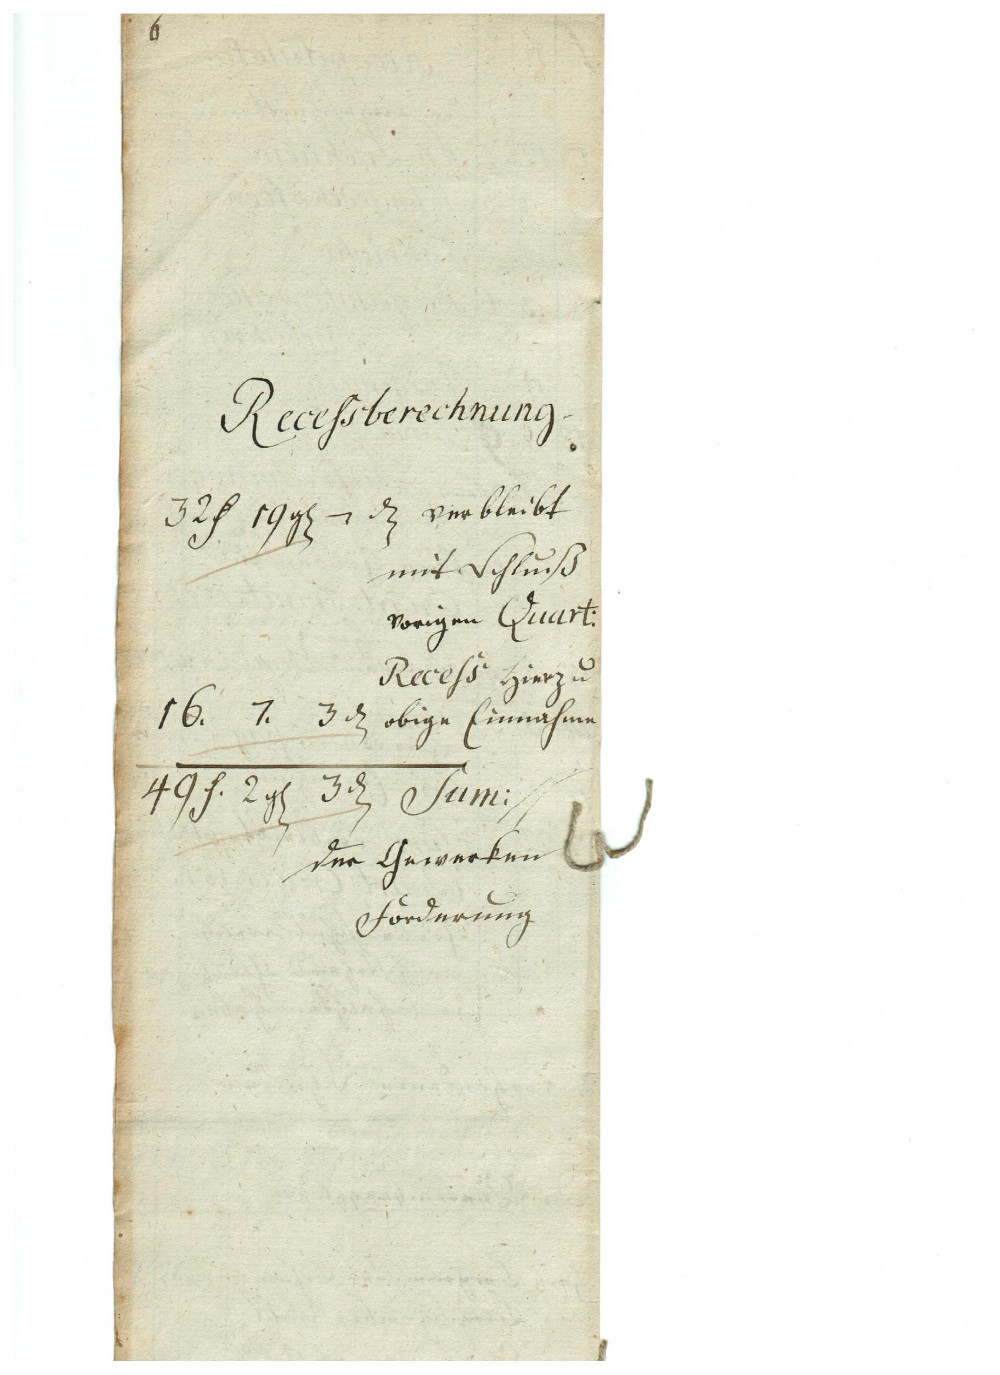 6
Recessberechnung.
32f 19gl – ₰ verbleibt
mit Schluß
vorigen Quart:
Recess hierzu
16. 7. 3₰ obige Einnahme
49f. 2gl 3₰ Sum:
der Gewerken
Förderung